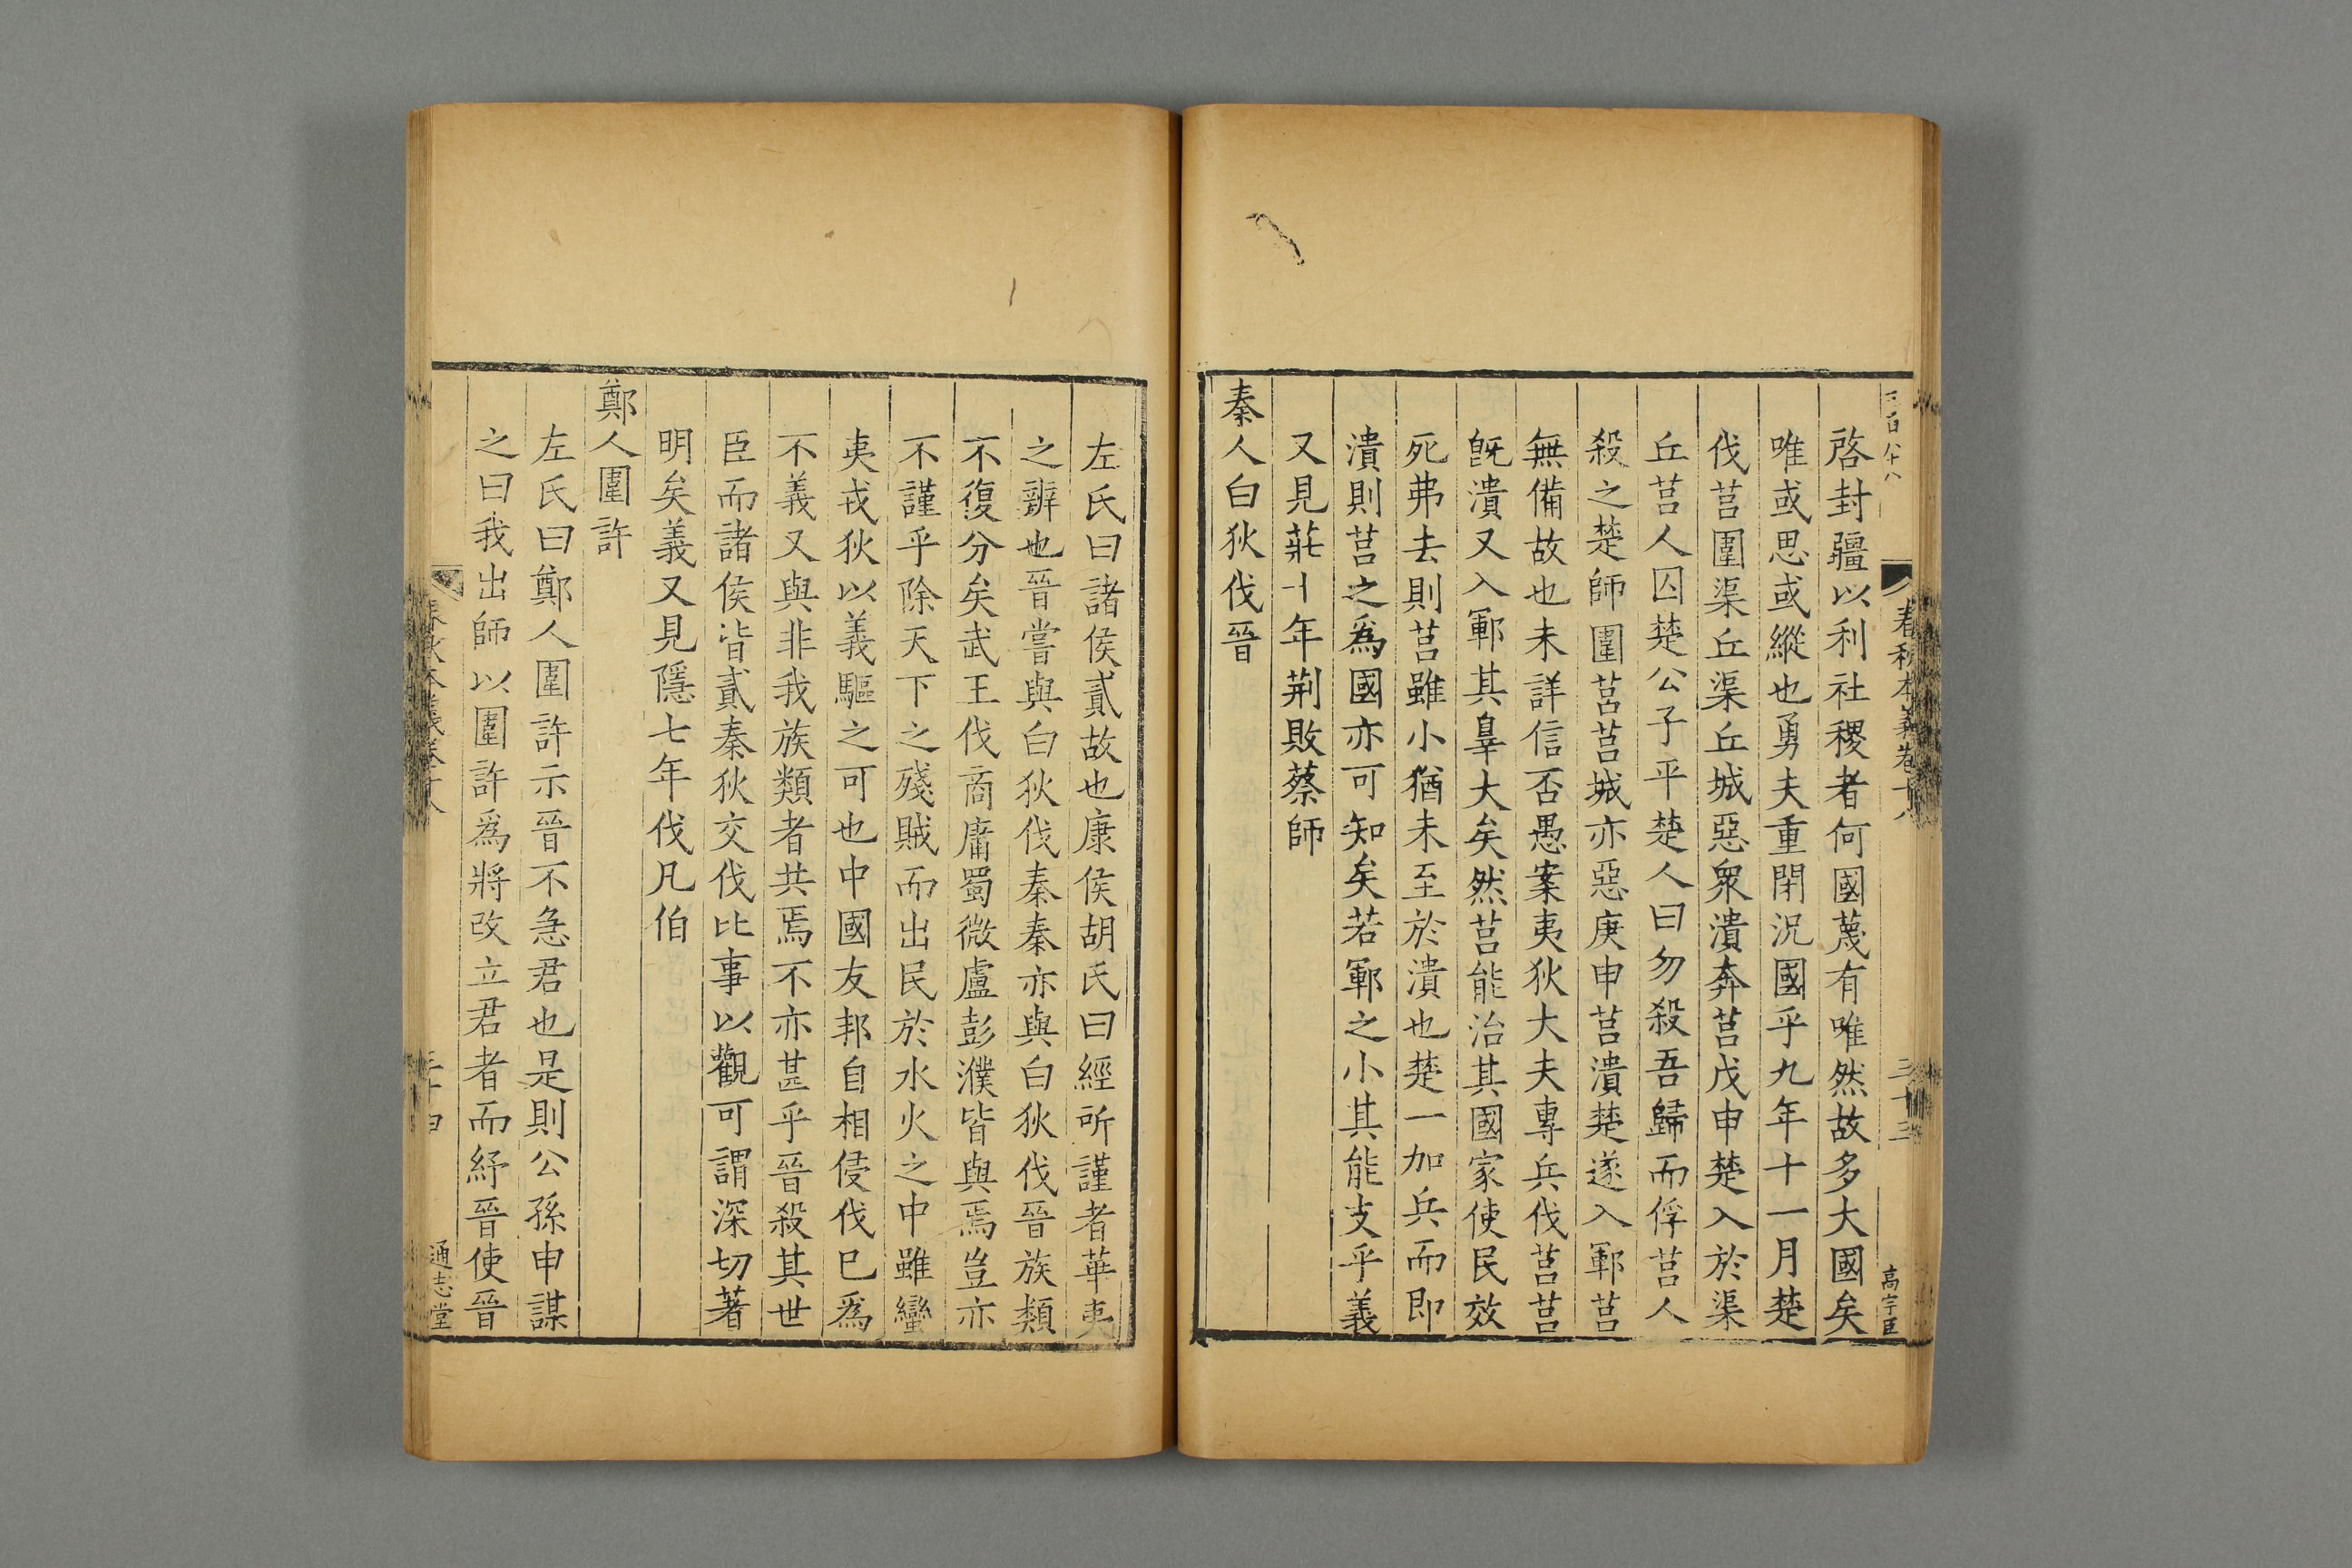 三百八十八
春秋本義卷十八
三十三
高宇臣
啓封疆以利社稷者何國蔑有唯然故多大國矣
唯或思或縱也勇夫重閉況國乎九年十一月楚
伐莒圍渠丘渠丘城惡衆潰奔莒戊申楚入於渠
丘莒人囚楚公子平楚人曰勿殺吾歸而俘莒人
殺之楚師圍莒莒城亦惡庚申莒潰楚遂入鄆莒
無備故也未詳信否愚案夷狄大夫專兵伐莒莒
旣潰又入鄆其辠大矣然莒能治其國家使民效
死弗去則莒雖小猶未至於潰也楚一加兵而即
潰則莒之爲國亦可知矣若鄆之小其能支乎義
又見莊十年荆敗蔡師
秦人白狄伐晉
左氏曰諸侯貳故也康侯胡氏曰經所謹者華夷
之辨也晉嘗與白狄伐秦秦亦與白狄伐晉族類
不復分矣武王伐商庸蜀微盧彭濮皆與焉豈亦
不謹乎除天下之殘賊而出民於水火之中雖蠻
夷戎狄以義驅之可也中國友邦自相侵伐已爲
不義又與非我族類者共焉不亦甚乎晉殺其世
臣而諸侯皆貳秦狄交伐比事以觀可謂深切著
明矣義又見隱七年伐凡伯
鄭人圍許
左氏曰鄭人圍許示晉不急君也是則公孫申謀
之曰我出師以圍許爲將改立君者而紓晉使晉
春秋本義卷十八
三十四
通志堂